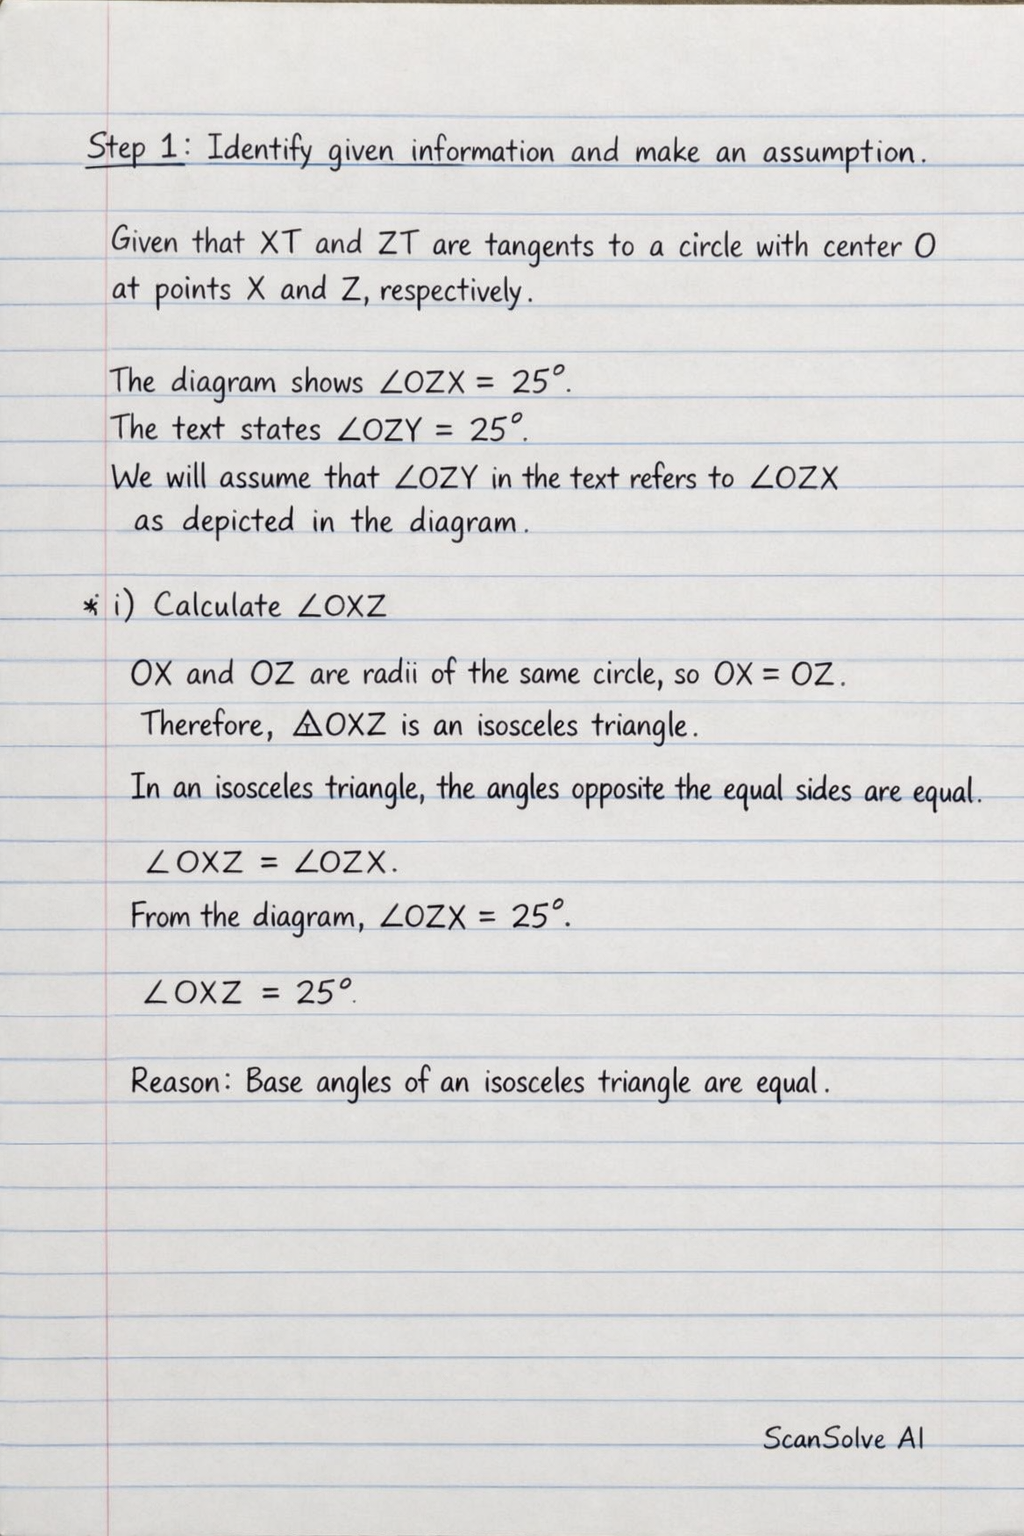 Step 1: Identify given information and make an assumption.
Given that XT and ZT are tangents to a circle with center O
at points X and Z, respectively.
The diagram shows ∠OZX = 25°.
The text states ∠OZY = 25°.
We will assume that ∠OZY in the text refers to ∠OZX
as depicted in the diagram.
* i) Calculate ∠OXZ
OX and OZ are radii of the same circle, so OX = OZ.
Therefore, △OXZ is an isosceles triangle.
In an isosceles triangle, the angles opposite the equal sides are equal.
∠OXZ = ∠OZX.
From the diagram, ∠OZX = 25°.
∠OXZ = 25°.
Reason: Base angles of an isosceles triangle are equal.
ScanSolve AI